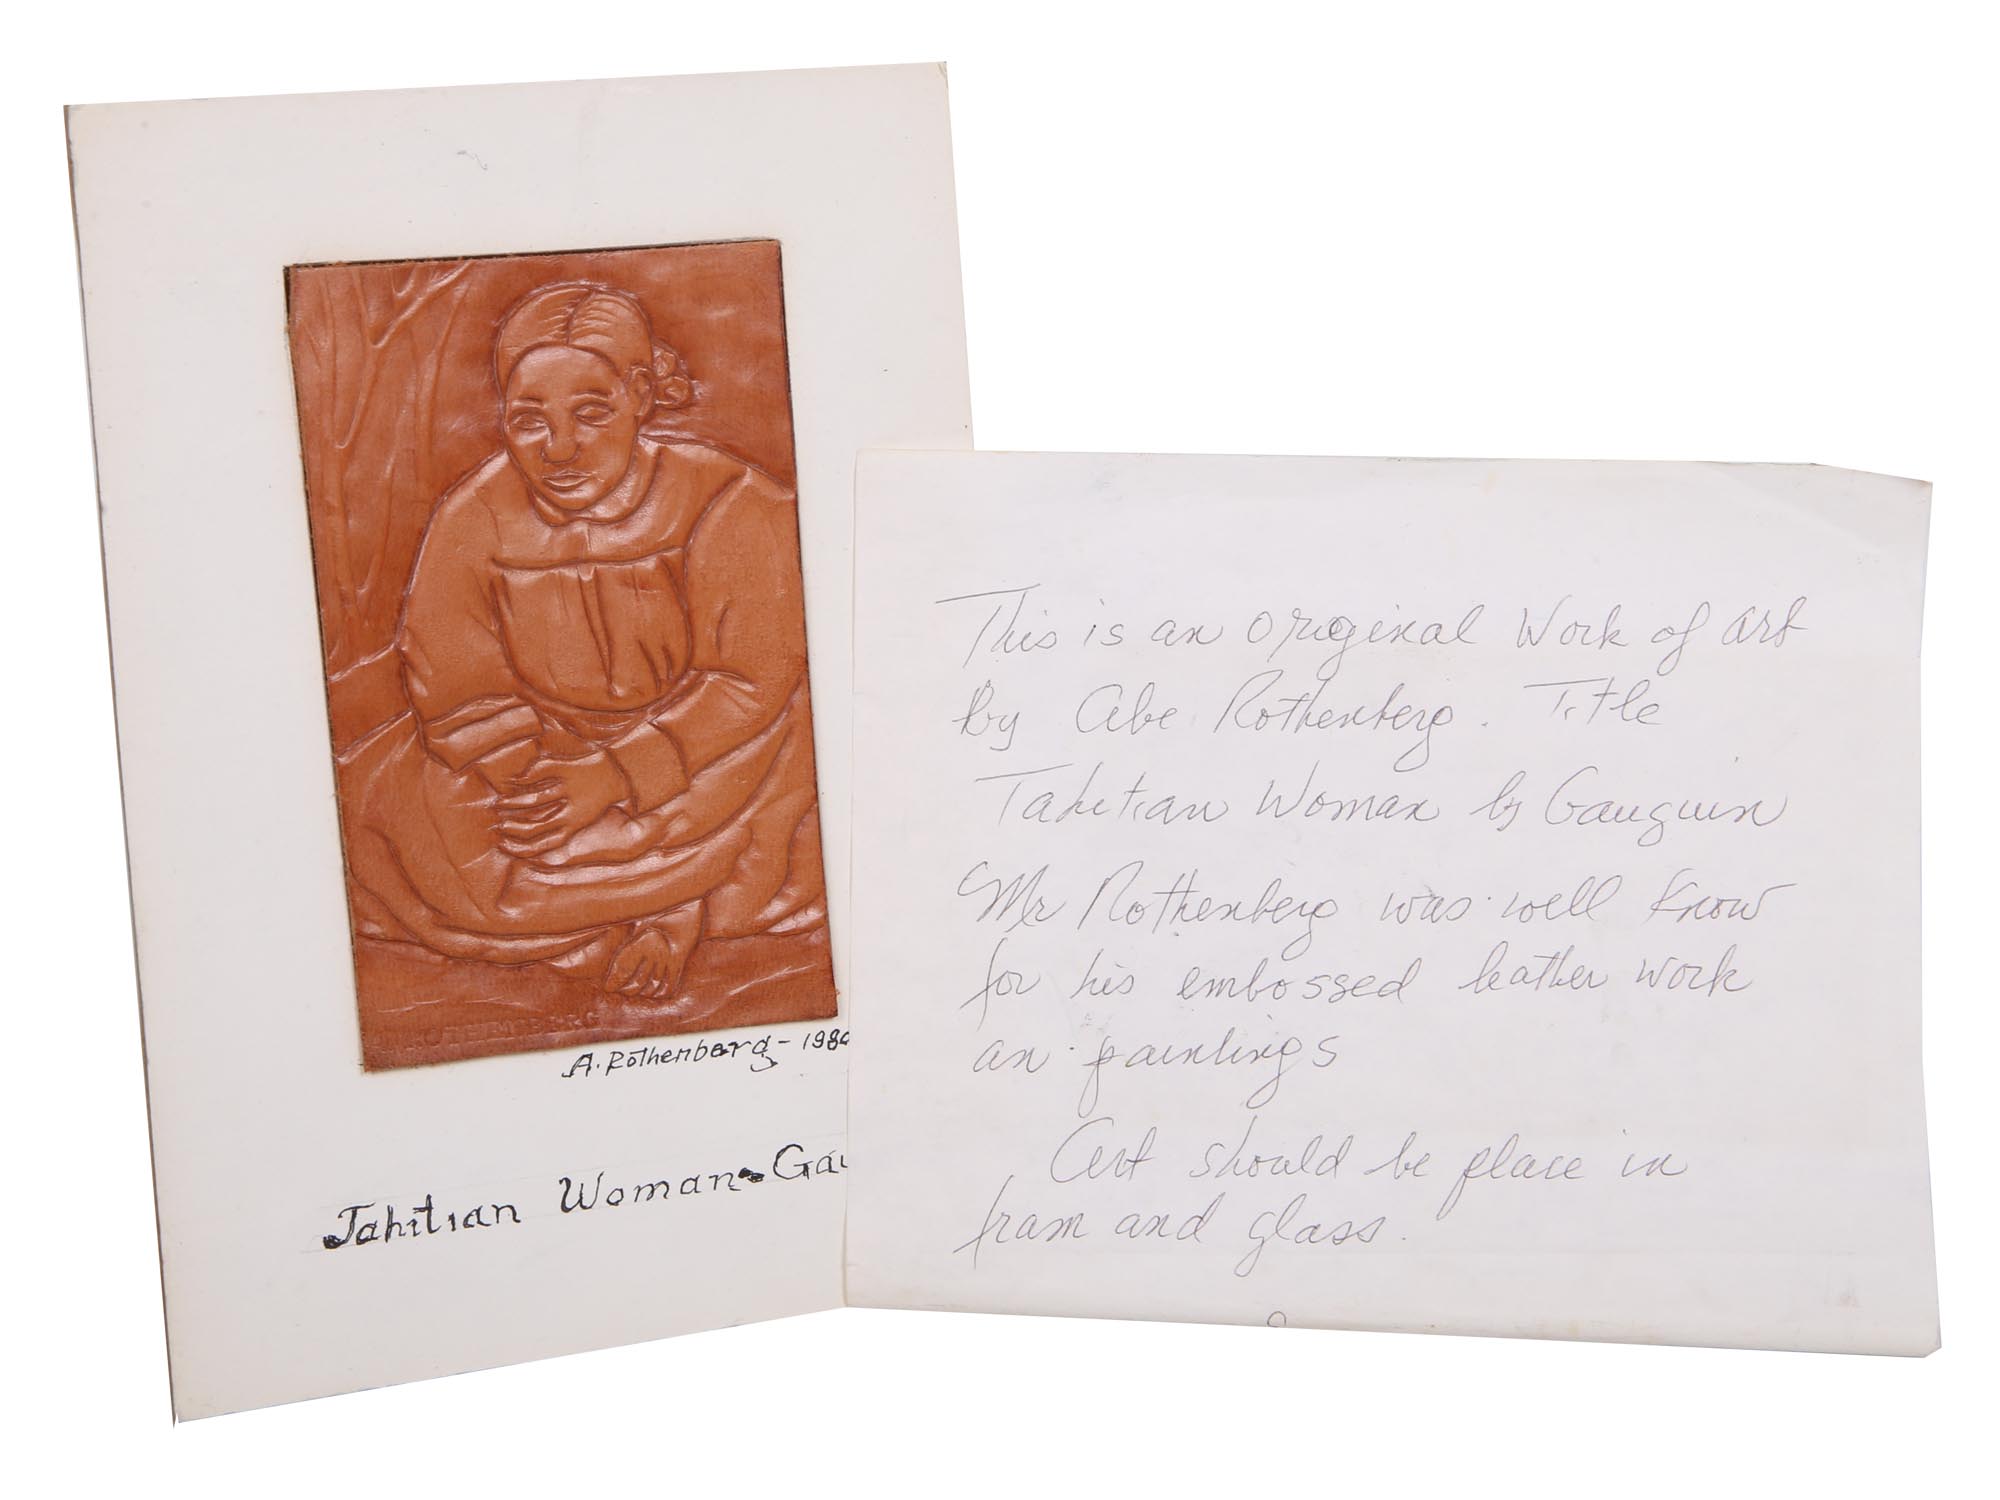 ROTHENBERG
A. Rothenberg - 198
Tahitian Woman - Gau
This is an original Work of art
by Abe Rothenberg. Title
Tahitian Woman by Gauguin
Mr Rothenberg was well Know
for his embossed leather work
an paintings
Art should be place in
fram and glass.